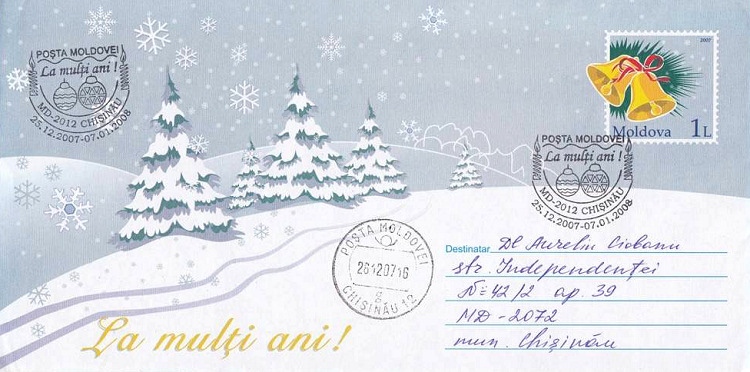 POȘTA MOLDOVEI
La mulți ani !
MD-2012 CHIȘINĂU
25.12.2007-07.01.2008
2007
Moldova 1L
POȘTA MOLDOVEI
La mulți ani !
MD-2012 CHIȘINĂU
25.12.2007-07.01.2008
POȘTA MOLDOVEI
26120716
CHIȘINĂU 12
Destinatar Dl Aureliu Ciobanu
str. Independenței
№ 42/2 ap. 39
MD-2072
mun. Chișinău
La mulți ani!